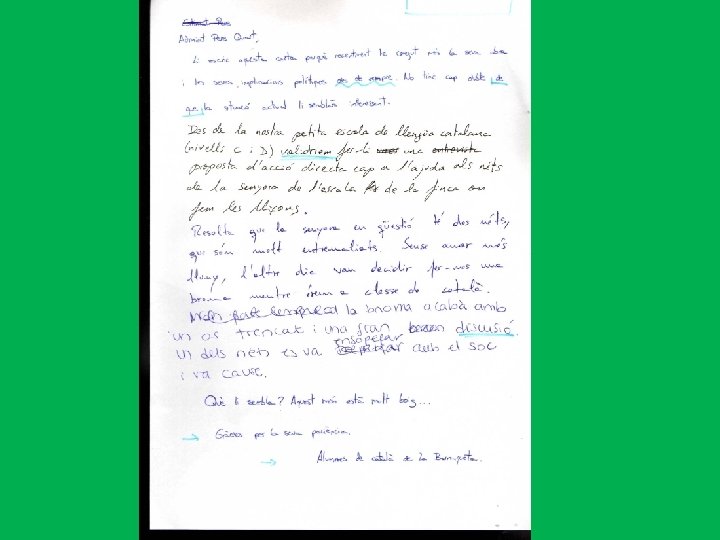 Estimat Pere
Admirat Pere Quart,
Li escric aquesta carta perquè recentment he conegut més la seva obra
i les seves implicacions polítiques de de sempre. No tinc cap dubte de
que la situació actual li semblaria interessant.
Des de la nostra petita escola de llengua catalana
(nivells C i D) voldríem fer-li una entrevista
proposta d'acció directa cap a l'ajuda als néts
de la senyora de l'escala de la finca on
fem les lliçons.
Resulta que la senyora en qüestió té dos néts,
que són molt entremaliats. Sense anar més
lluny, l'altre dia van decidir fer-nos una
broma mentre érem a classe de català.
la broma acabà amb
un os trencat i una gran discusió.
Un dels nens es va ensopegar amb el soc
i va caure.
Què li sembla? Aquest món està molt boig...
Gràcies per la seva paciència.
Alumnes de català de la